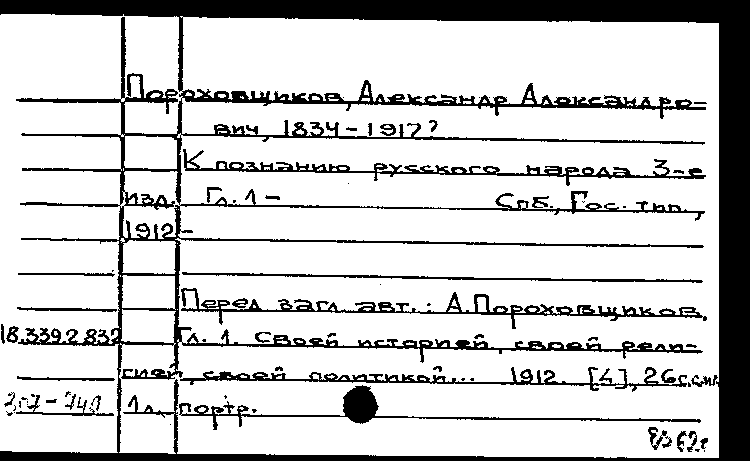 Пороховщиков, Александр Александро-
вич, 1834-1917?
К познанию русского народа 3-е
изд. Гл. 1 - Спб., Гос. тип.,
1912-
Перед загл. авт.: А. Пороховщиков.
18.339.2.832 Гл. 1. Своей историей, своей рели-
гией, своей политикой... 1912. [4], 26 с.
1 л. портр.